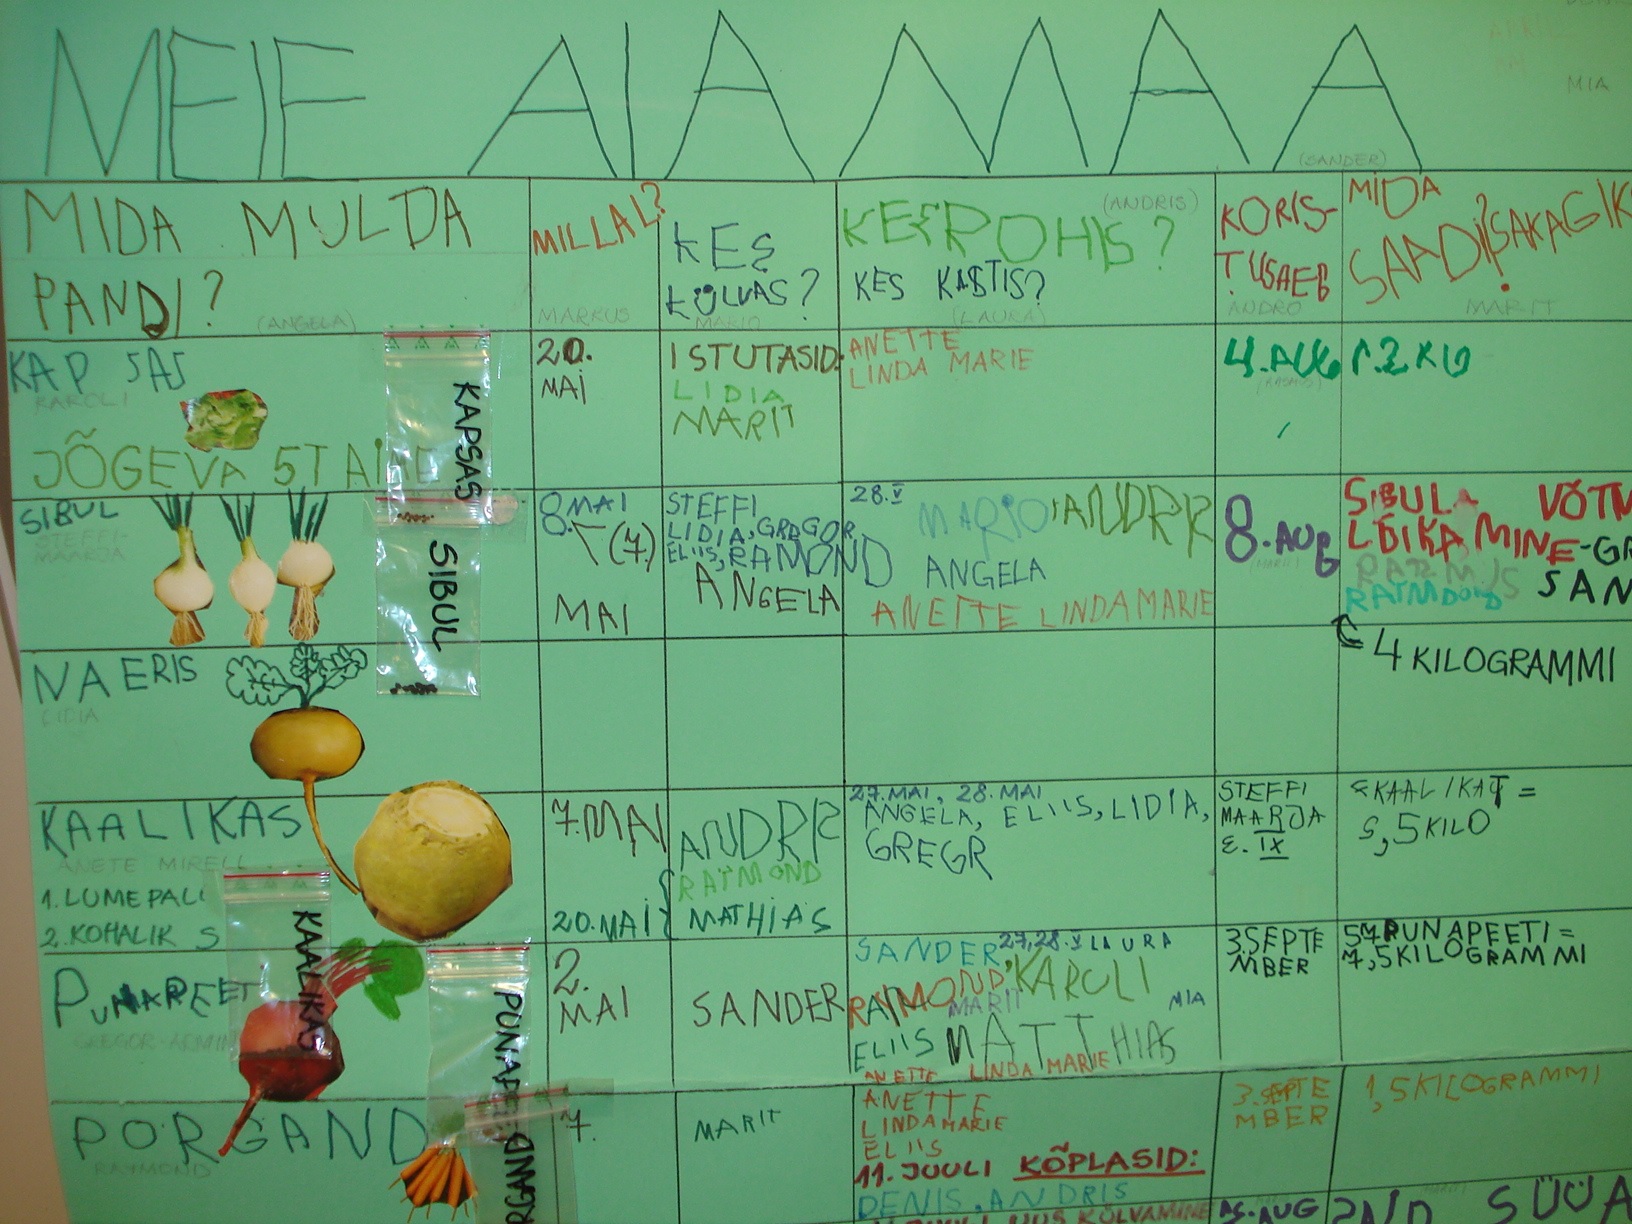 MEIE AIAMAA
(SANDER)
MIA
MIDA MULDA
PANDI?
(ANGELA)
MILLAL?
MARKUS
KES
KÜLVAS?
MARIO
(ANDRIS)
KES ROHIS?
KES KASTIS?
(LAURA)
KORIS-
TUSAEG
ANDRO
MIDA
SAADI?
MARIT
KAPSAS
KAROLI
JÕGEVA 5 TAIME
KAPSAS
20.
MAI
ISTUTASID:
LIDIA
MARIT
ANETTE
LINDA MARIE
4. AUG
SIBUL
STEFFI-
MAARJA
SIBUL
8. MAI
(7.)
MAI
STEFFI
LIDIA, GREGOR,
ELIIS, RAIMOND
ANGELA
28.V
MARIO, ANDRR
ANGELA
ANETTE LINDA MARIE
8. AUG
(MARIT)
SIBULA VÕTM
LÕIKAMINE-GR
RASMUS SAN
RAIMOND
4 KILOGRAMMI
NAERIS
LIDIA
KAALIKAS
ANETE MIRELL
1. LUMEPALL
2. KOHALIK S
KAALIKAS
7. MAI
20. MAI
ANDRR
RAIMOND
MATHIAS
27. MAI, 28. MAI
ANGELA, ELIIS, LIDIA,
GREGR
STEFFI
MAARJA
3. IX
KAALIKAT =
5,5 KILO
PUNAPEET
GREGOR-ARMIN
PUNAPEET
2.
MAI
SANDER
SANDER, 27,28.V LAURA
RAIMOND, KAROLI
MARIT MIA
ELIIS MATTHIAS
ANETTE LINDA MARIE
3. SEPTE
MBER
57 PUNAPEETI =
7,5 KILOGRAMMI
PORGAND
RAYMOND
PORGAND
7.
MARIT
ANETTE
LINDA MARIE
ELIIS
11. JUULI KÕPLASID:
DENIS, ANDRIS
UUS KÜLVAMINE
3. SEPTE
MBER
1,5 KILOGRAMMI
25. AUG
SÜÜA